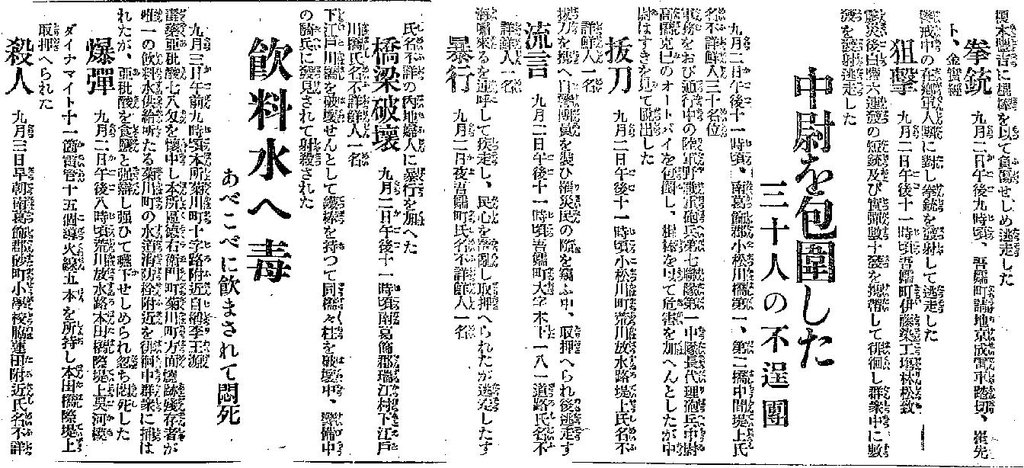 榎本豐吉に棍棒を以て負傷せしめ逃走した
拳銃　九月二日午後九時頃、吾嬬町請地京成電車踏切、崔先
ト、金實經
狙撃　九月二日午後十一時頃吾嬬町伊藤染工場林松致
警戒中の在鄕軍人團に對し拳銃を發射して逃走した
震災後白鞘六連發の短銃及び實彈數十發を携帶して徘徊し群衆中に數
發を發射逃走した
中尉を包圍した
三十人の不逞團
九月二日午後十一時頃、南葛飾郡小松川橋第一、第二橋中間堤上氏
名不詳鮮人三十名位
軍務をおび通行中の陸軍野戰重砲兵第七聯隊第一中隊長代理砲兵中尉
高橋克巳のオートバイを包圍し、棍棒を以て危害を加へんとしたが中
尉はすきを見て脫出した
拔刀　九月二日午後十一時頃小松川町荒川放水路堤上氏名不
詳鮮人一名
拔刀を携へ自警團員を裝ひ罹災民の隙を窺ふ中、取押へられ後逃走す
流言　九月二日午後十一時頃吾嬬町大字木下一八一道路氏名不
詳鮮人一名
海嘯來るを連呼して疾走し、民心を騷亂し取押へられたが逃走した
暴行　九月二日夜吾嬬町氏名不詳鮮人一名
氏名不詳の內地婦人に暴行を加へた
橋梁破壞　九月二日午後十一時頃南葛飾郡瑞江村下江戶
川橋氏名不詳鮮人一名
下江戶川橋を破壞せんとして鐵棒を持つて同橋々柱を破壞中、警備中
の騎兵に發見されて射殺された
飮料水へ毒
あべこべに飮まされて悶死
九月三日午前九時頃本所菊川町十字路附近自稱李王源
毒藥亞砒酸七八匁を懷中し本所區猿右衞門町菊川町方面罹災殘存者が
唯一の飮料水供給所たる菊川町の水道消防栓附近を徘徊中群衆に捕は
れたが、亞砒酸を食鹽と强辯し强ひて嚥下せしめられ忽ち悶死した
爆彈　九月二日午後八時頃荒川放水路本田橋際堤上吳河模
ダイナマイト十一箇雷管十五個導火線五本を所持し本田橋際堤上
取押へられた
殺人　九月三日早朝南葛飾郡砂町小學校脇蓮田附近氏名不詳